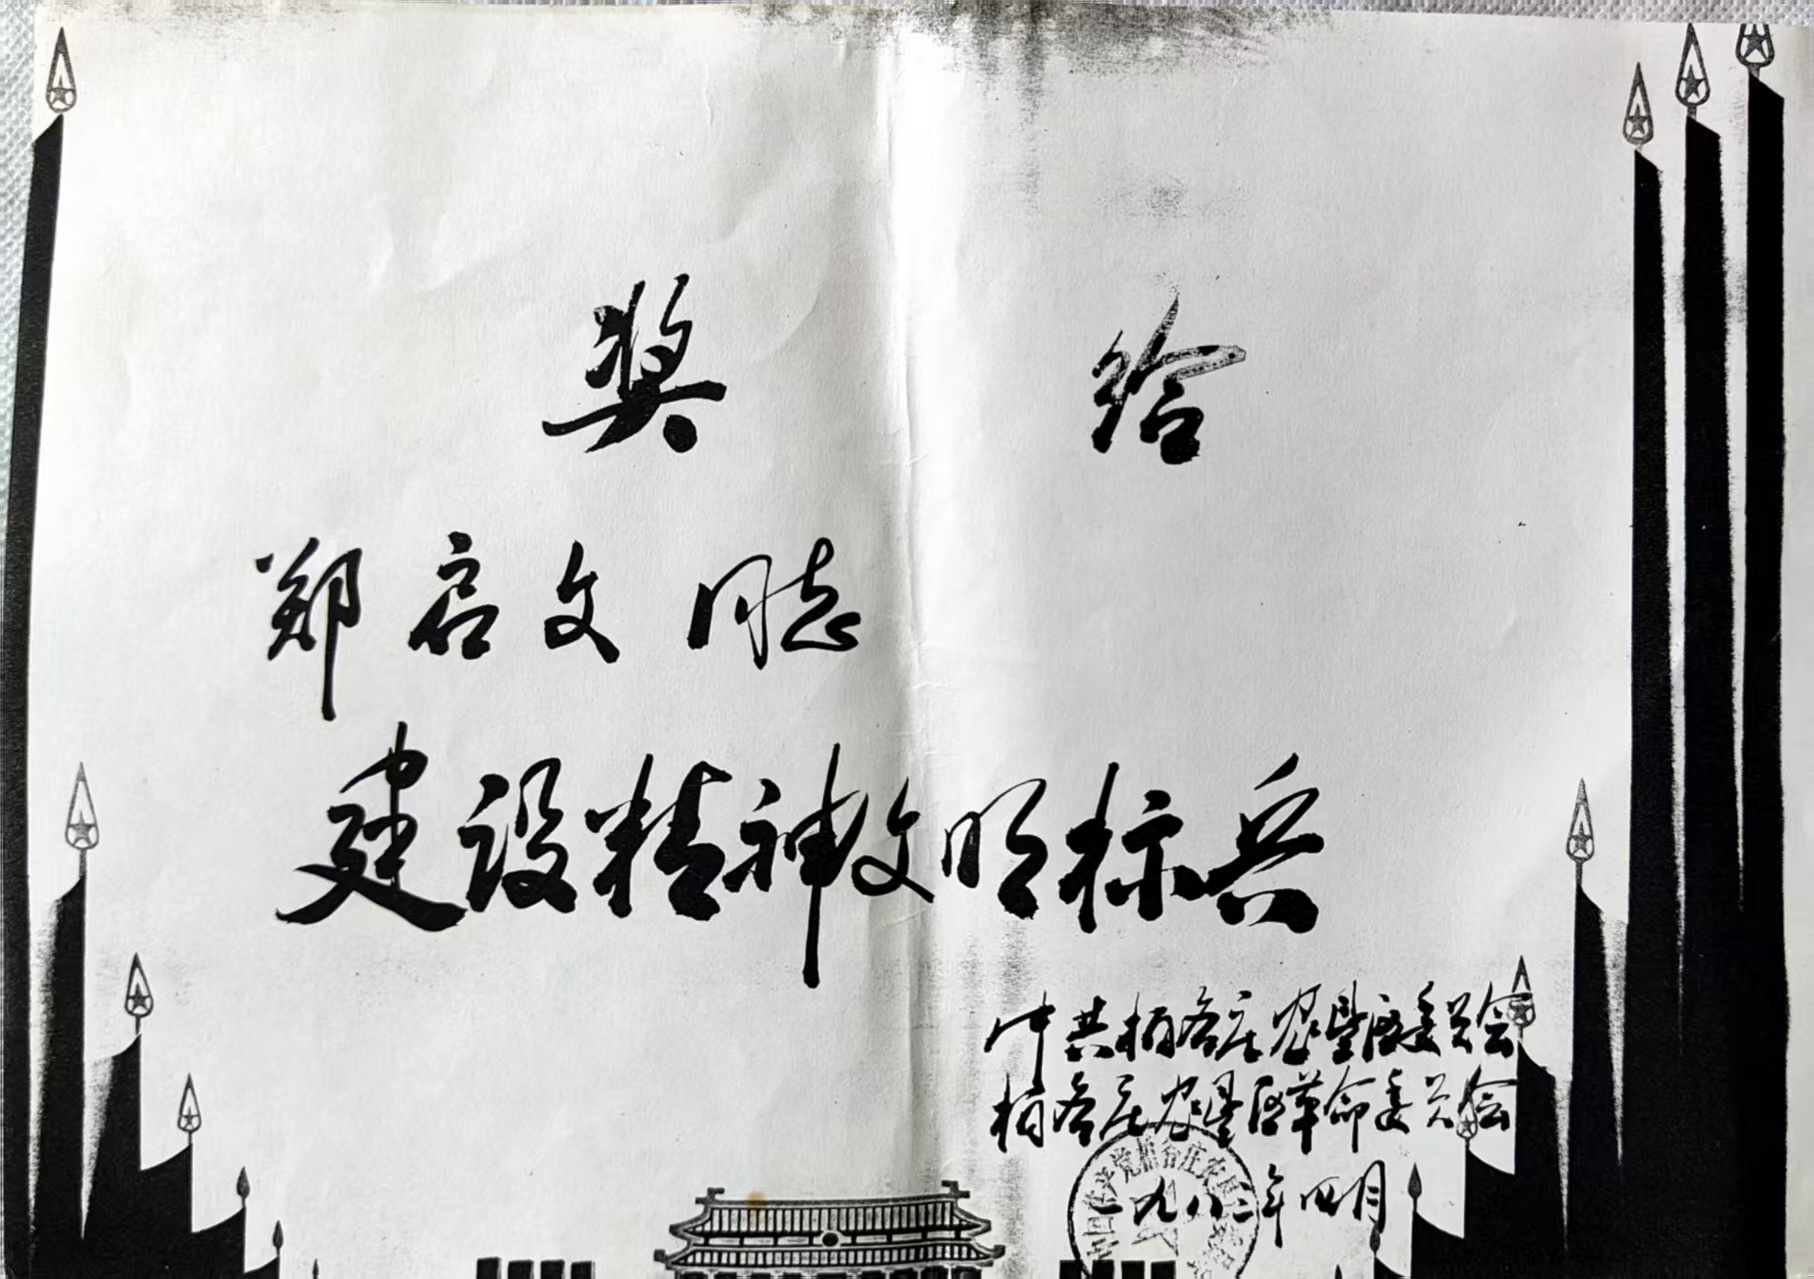 奖 给
郑启文 同志
建设精神文明标兵
中共柏各庄农垦区委员会
柏各庄农垦区革命委员会
一九八二年四月